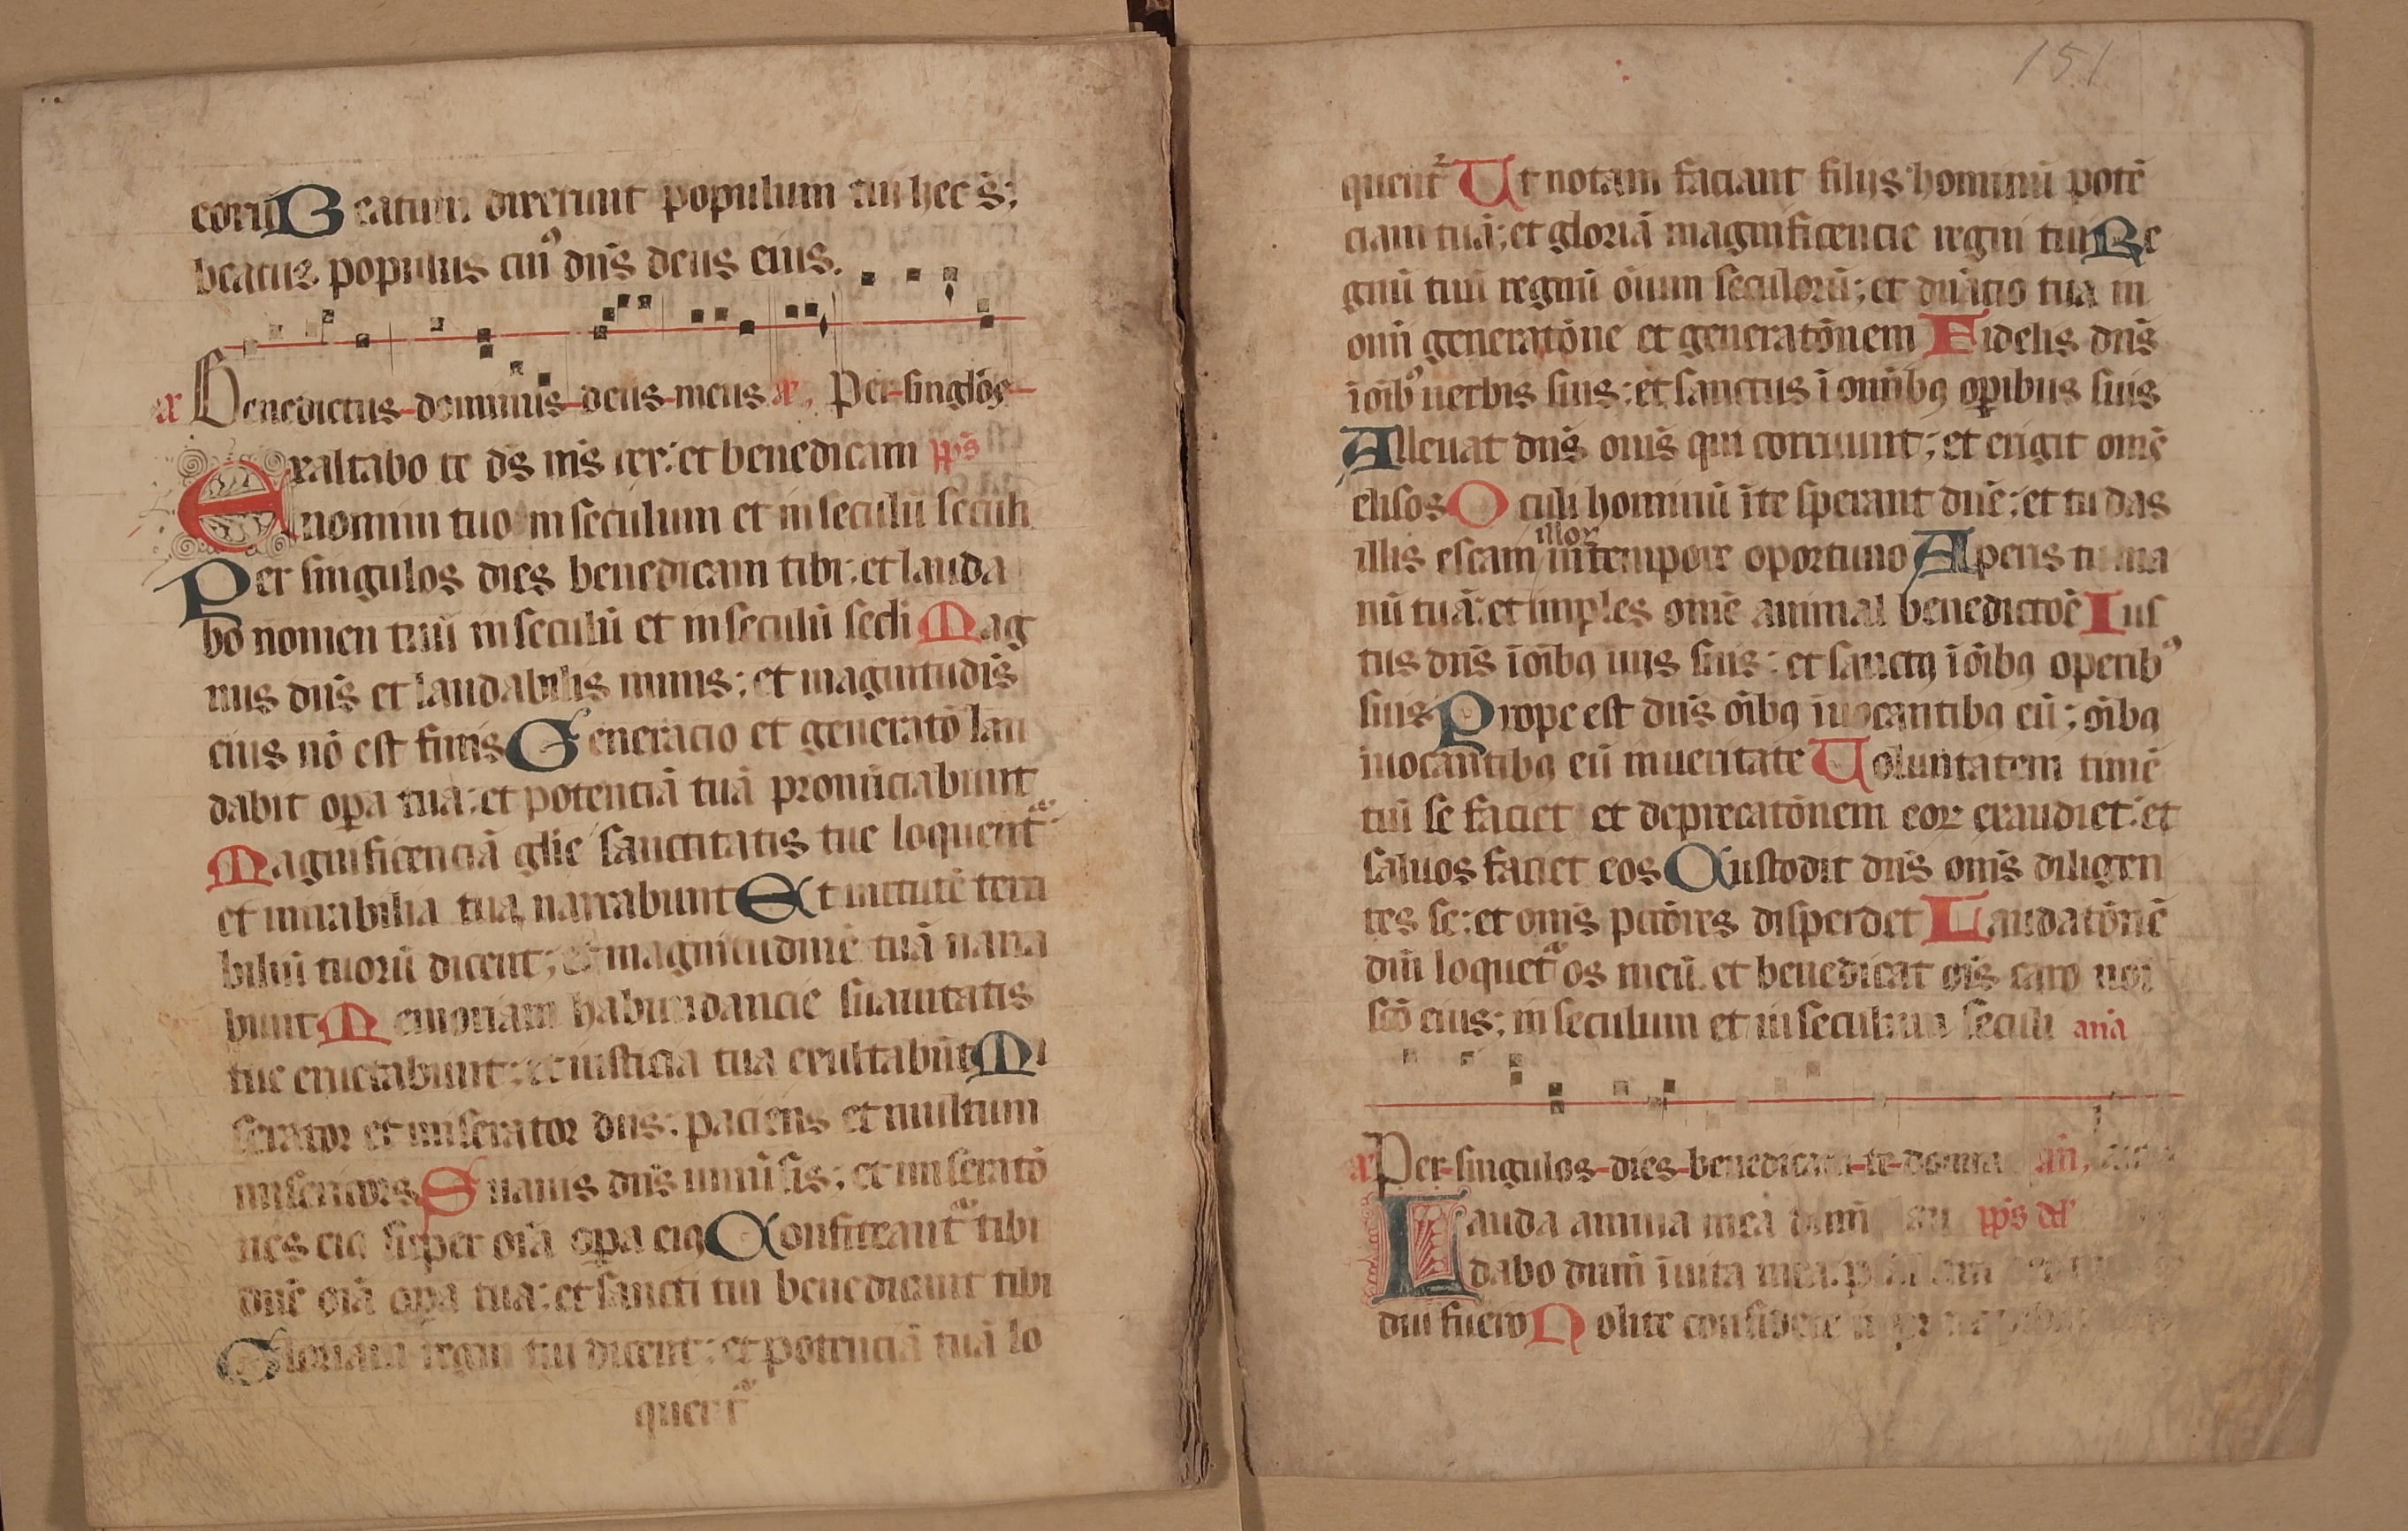 corū Beatum dixerunt populum cui hec s̄;
beatus populus cui⁹ dn̄s deus eius.
Benedictus dominus deus meus Per singlōs
Exaltabo te ds̄ m̄s rex: et benedicam pp̄s
nomini tuo in seculum et in seculū seculi
Per singulos dies benedicam tibi: et lauda
bo nomen tuū in seculū et in seculū secli Mag
nus dn̄s et laudabilis nimis; et magnitudīs
eius nō est finis Generacio et generatō lau
dabit opa tua: et potenciā tuā pronūciabunt
Magnificenciā glīe sanctitatis tue loquent
et mirabilia tua narrabunt Et uirtutē terri
biliū tuorū dicent; et magnitudinē tuā narra
bunt Memoriam habundancie suauitatis
tue eructabunt: et iusticia tua exultabūt Mi
serator et miserator dn̄s: paciens et multum
misericors Suauis dn̄s uniūsis; et miseratō
nes eiꝰ super oīa opa eiꝰ Confiteant tibi
dn̄e oīa opa tua: et sancti tui benedicant tibi
Gloriam regni tui dicent: et potenciā tuā lo
quent
151
quent Ut notam faciant filijs hominū potē
ciam tuā; et gloriā magnificencie regni tui Re
gnū tuū regnū oīum seculorū; et dn̄atio tua in
omī generatōne et generatōnem Fidelis dn̄s
ī oīb⁹ uerbis suis: et sanctus ī omībꝰ opibus suis
Alleuat dn̄s oms̄ qui corruunt; et erigit omē̄s
elisos Oculi hominū īte sperant dn̄e; et tu das
illis escam in tempore oportuno Aperis tu ma
illoꝝ
nū tuā: et imples omē animal benedictōē Ius
tus dn̄s ī oībꝰ uijs suis: et sanctꝰ ī oībꝰ operib⁹
suis Prope est dn̄s oībꝰ īuocantibꝰ eū; oībꝰ
īuocantibꝰ eū in ueritate Uoluntatem timē
tiū se faciet et deprecatōnem eoꝝ exaudiet: et
saluos faciet eos Custodit dn̄s oms̄ diligen
tes se: et oms̄ pctōres disperdet Laudatōnē
dn̄i loquet os meū. et benedicat ois̄ caro noī
scō eius; in seculum et in seculum seculi ana
Per singulos dies benedicam te domine an̄
Lauda anima mea dnm̄ pp̄s dd
dabo dnm̄ ī uita mea: psallam
diu fuero Nolite confidere